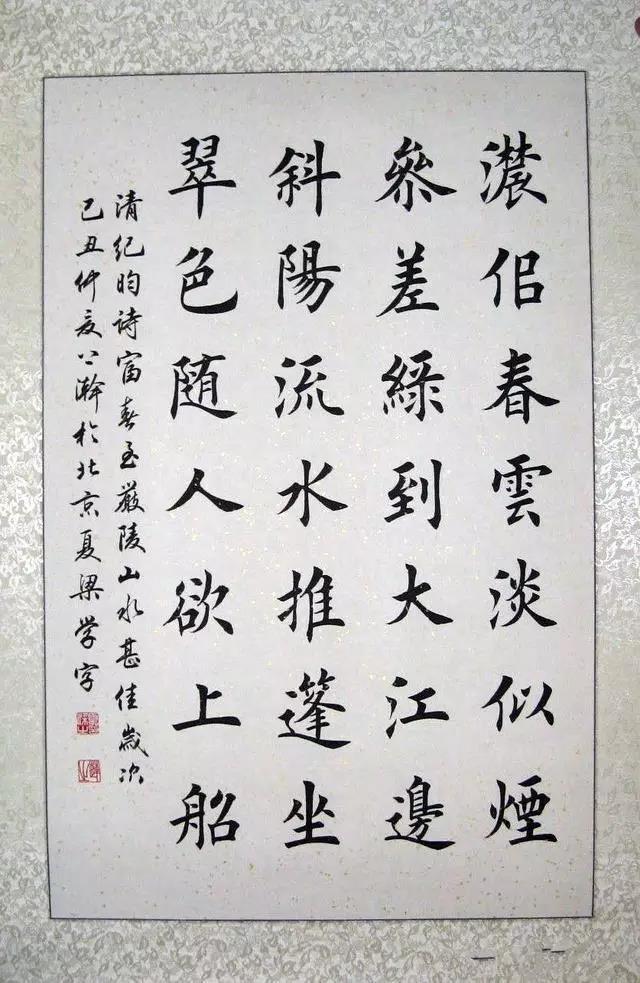 濃侣春雲淡似煙
叅差綠到大江邊
斜陽流水推蓬坐
翠色随人欲上船
清纪昀诗富春至嚴陵山水甚佳歲次
己丑仲夏 瀚於北京夏梁学字